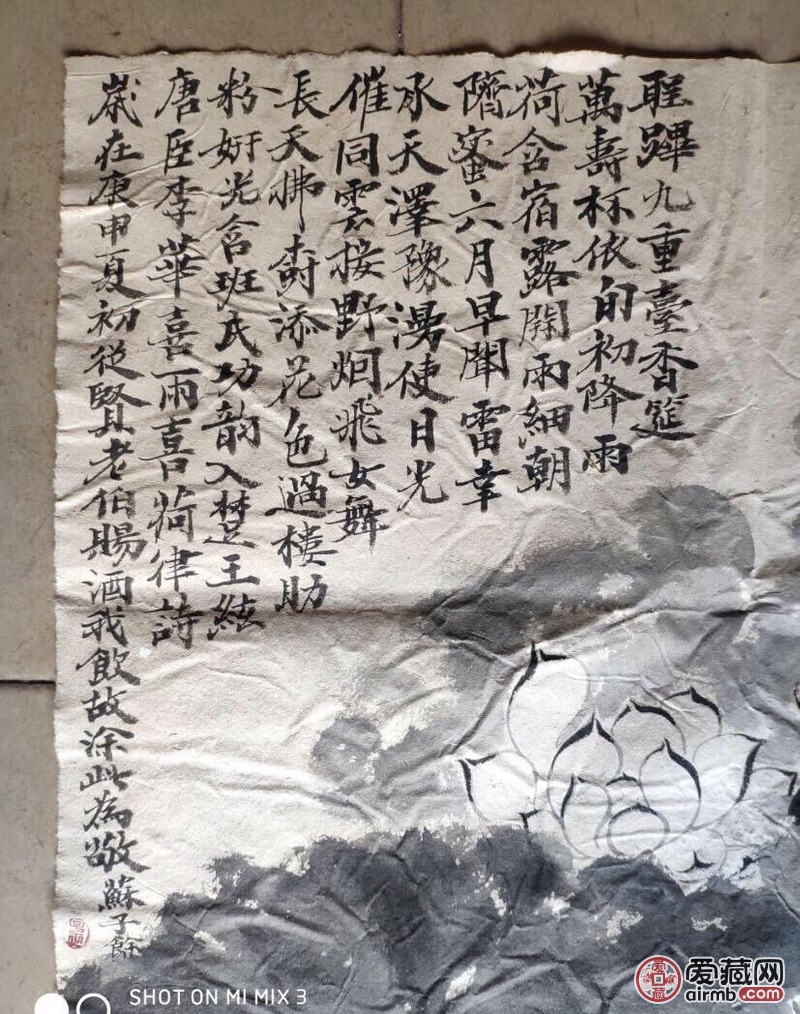 聖蹕九重臺香筵
萬壽杯依旬初降雨
荷含宿露開雨細朝
隮密六月早聞雷幸
承天澤豫湧使日光
催同雲接野烟飛女舞
長天拂樹添花色過樓助
粉妍光含班氏功韵入楚王絃
唐臣李華喜雨喜荷律詩
歲在庚申夏初從賢老伯賜酒我飲故涂此為敬 蘇子餘
SHOT ON MI MIX 3
爱藏网
airmb.com